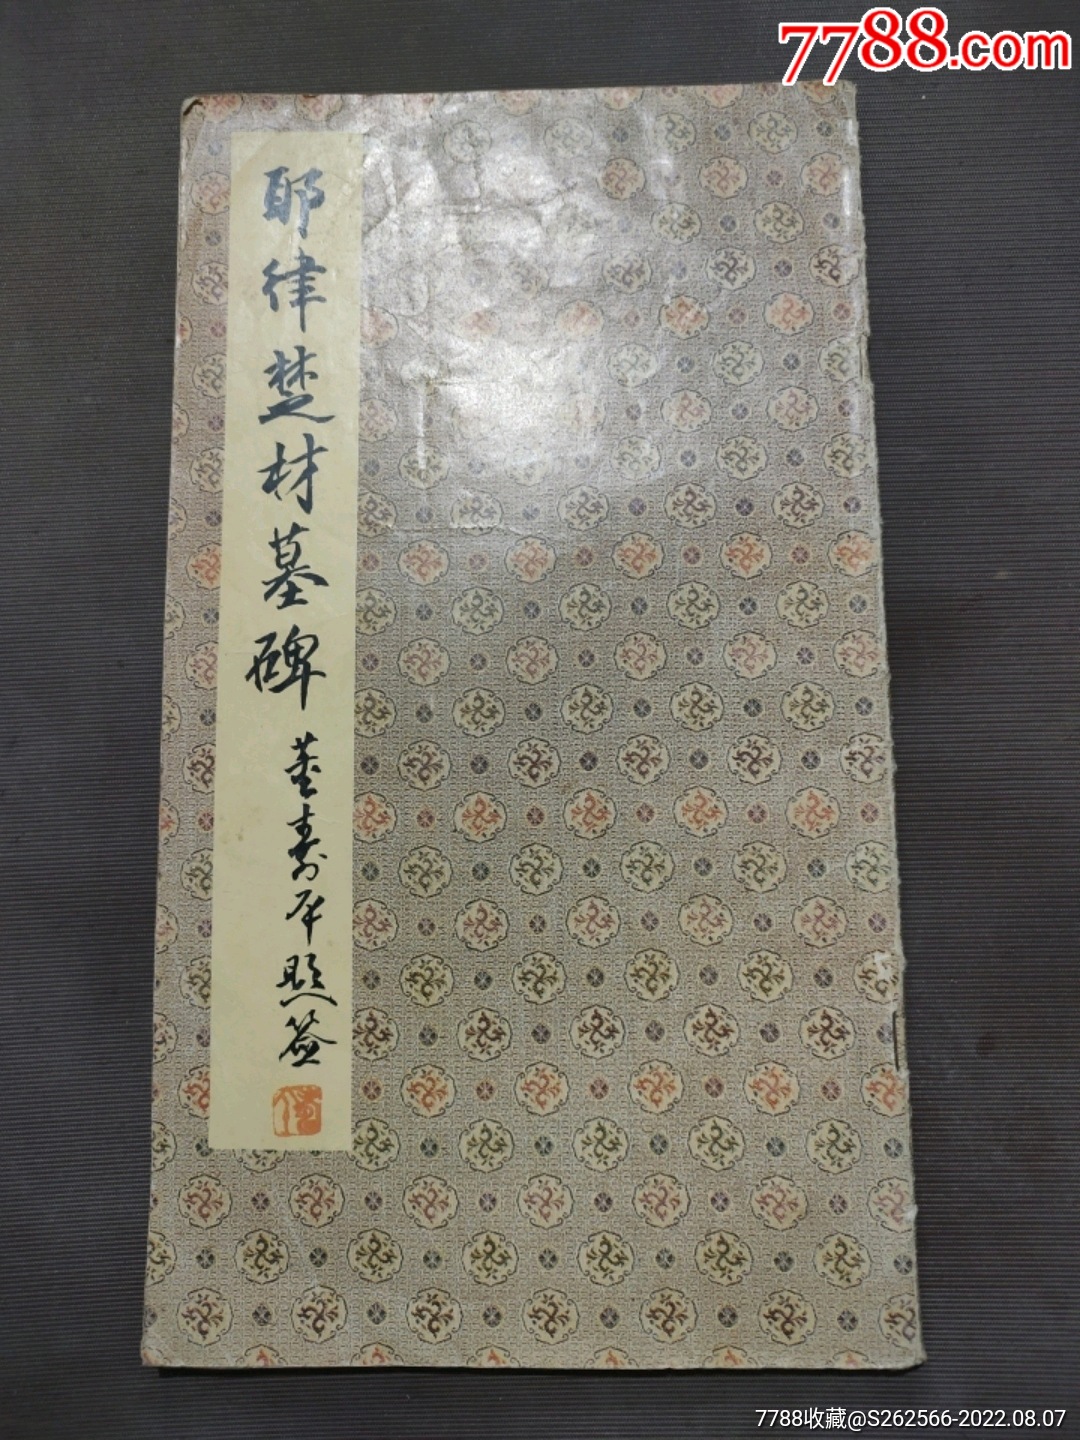 7788.com
耶律楚材墓碑
董寿平題签
7788收藏@S262566-2022.08.07